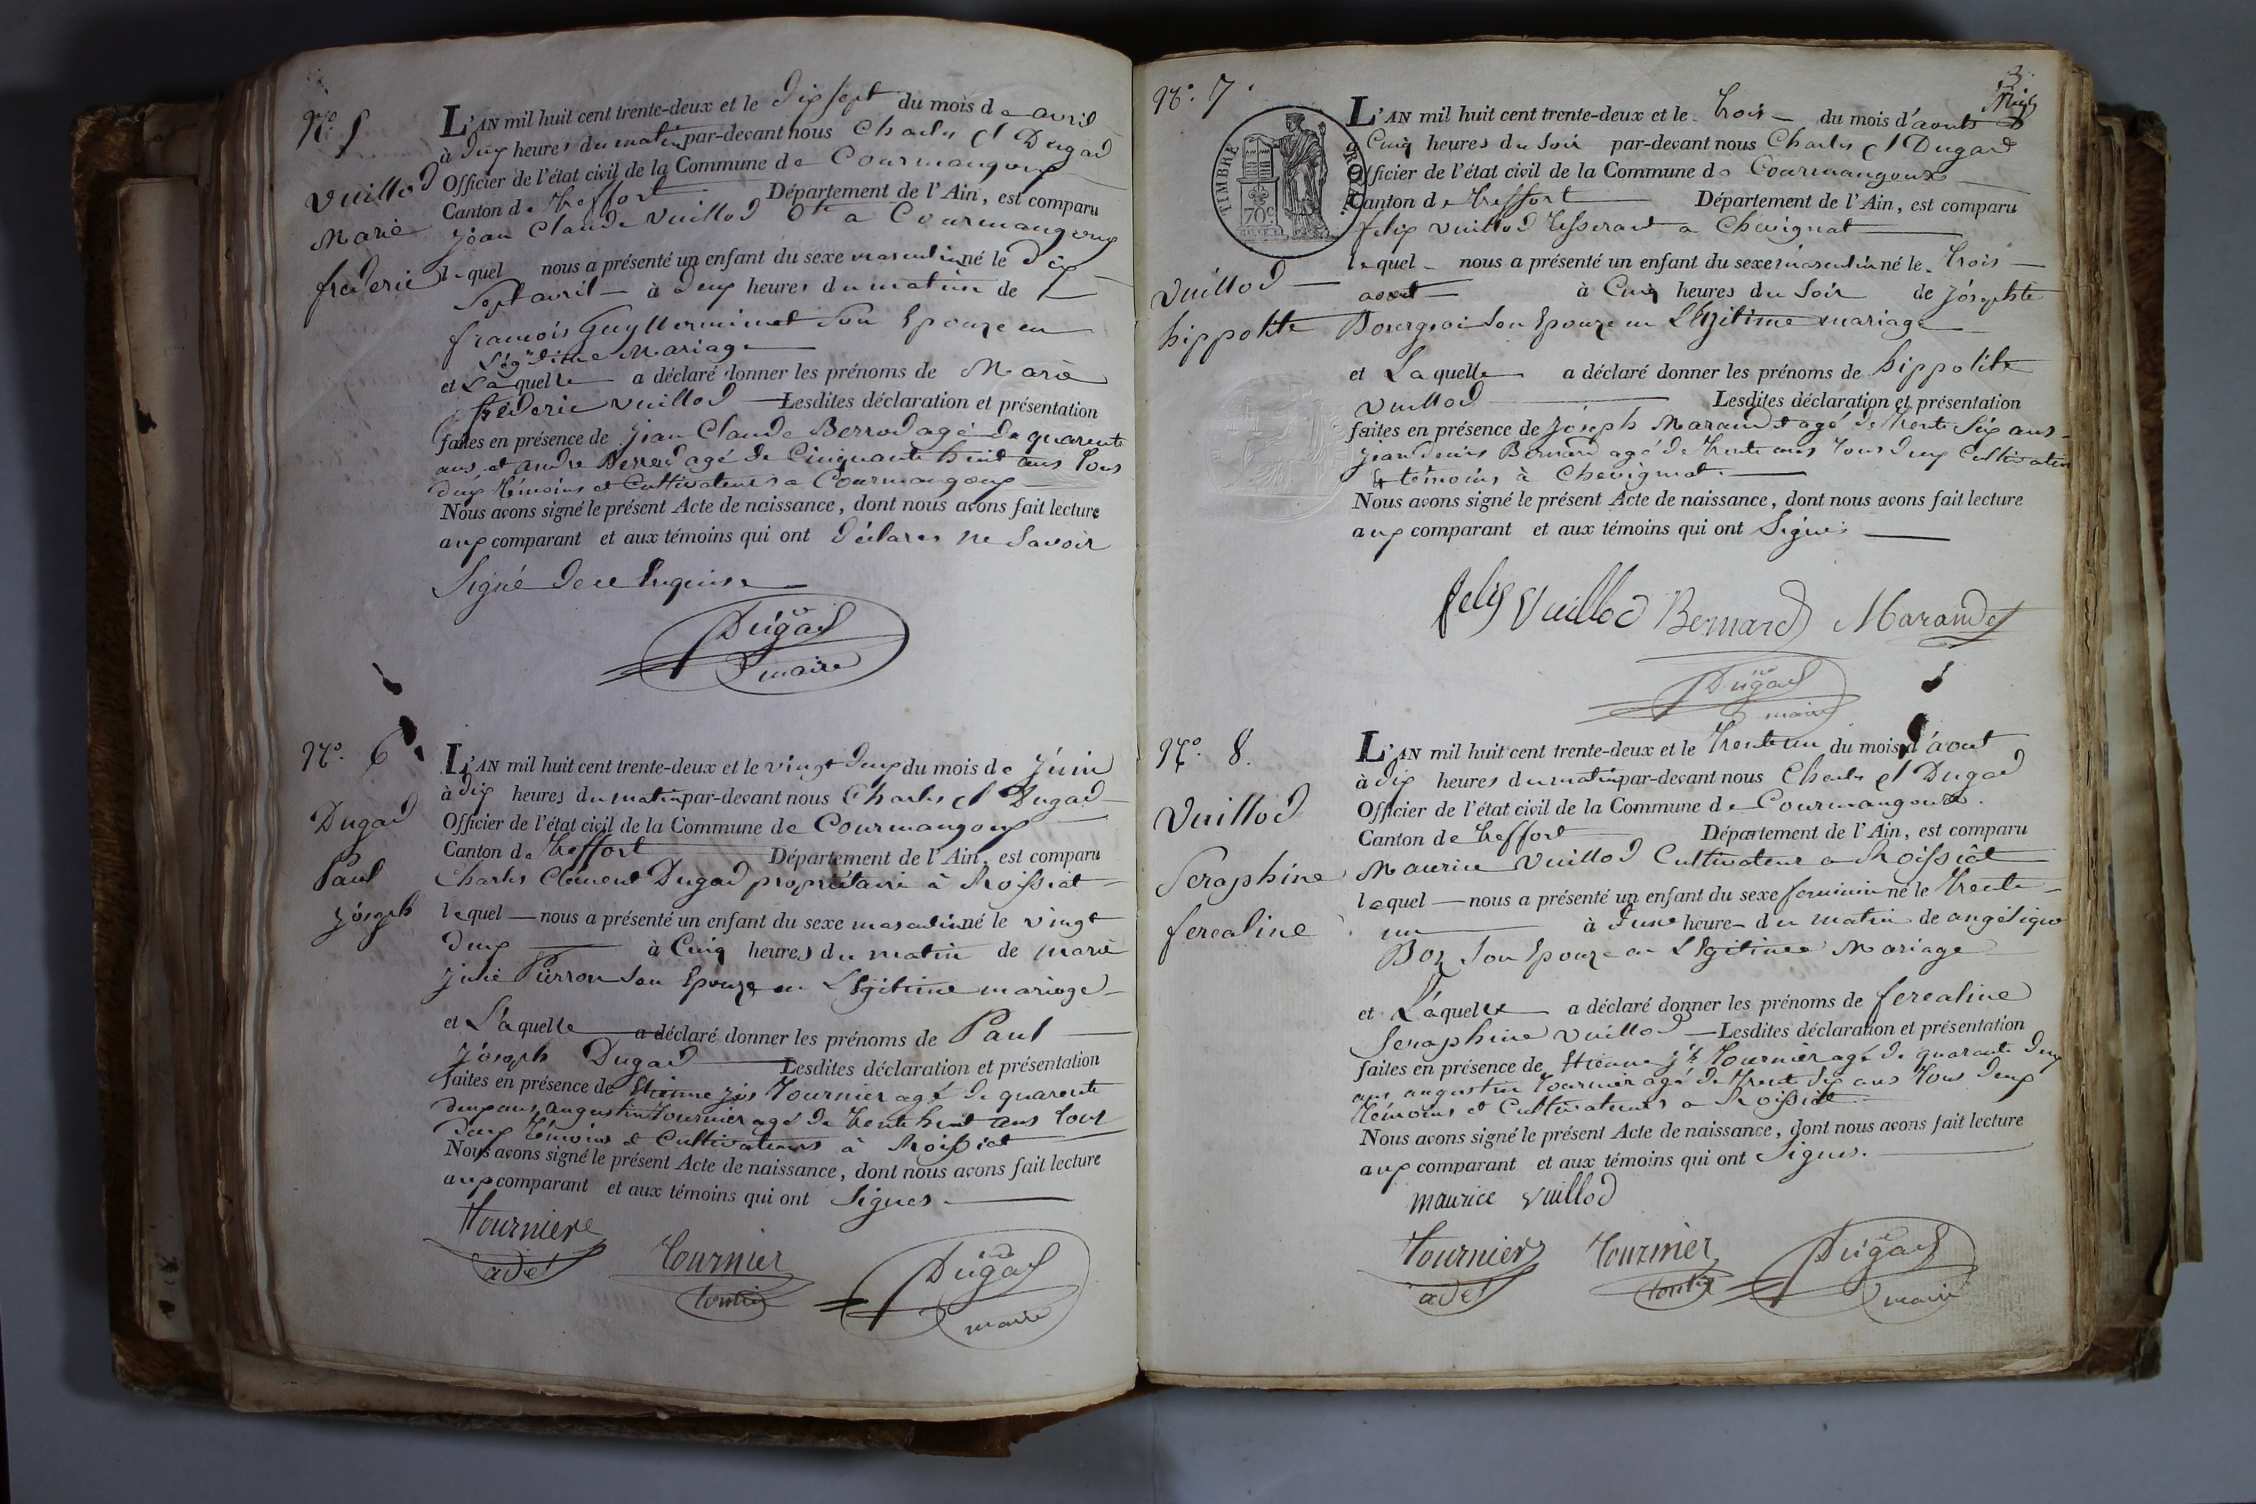 N.° 5
Vuillod
Marie
frederic
L'AN mil huit cent trente-deux et le dix sept du mois de avril
à dix heures du matin par-devant nous Charles Ct Dugad
Officier de l'état civil de la Commune de Courmangoux
Canton de treffort Département de l'Ain, est comparu
jean Claude vuillod a Courmangoux
lequel nous a présenté un enfant du sexe masculin né le dix
sept avril à deux heures du matin de
francois Guyllerminet Son Epouze en
Légitime Mariage
et Laquelle a déclaré donner les prénoms de Marie
frederic vuillod Lesdites déclaration et présentation
faites en présence de jean Claude Berrod agé de quarente
ans et andre Berrod agé de Cinquante huit ans tous
deux témoins et Cultivateurs a Courmangoux
Nous avons signé le présent Acte de naissance, dont nous avons fait lecture
aux comparant et aux témoins qui ont déclarer ne Savoir
Signé de ce Enquise
Dugad
maire
N.° 6
Dugad
Paul
jóseph
L'AN mil huit cent trente-deux et le vingt deux du mois de juin
à dix heures du matin par-devant nous Charles Ct Dugad
Officier de l'état civil de la Commune de Courmangoux
Canton de treffort Département de l'Ain, est comparu
Charles Clément Dugad propriétaire à Roissiat
lequel nous a présenté un enfant du sexe masculin né le vingt
deux à Cinq heures du matin de marie
julie Pierron Son Epouze en Légitime mariage
et Laquelle a déclaré donner les prénoms de Paul
jóseph Dugad Lesdites déclaration et présentation
faites en présence de Etienne jos Tournier agé de quarente
deux ans, augustin tournier agé de trente huit ans tous
deux témoins et Cultivateurs à Roissiat
Nous avons signé le présent Acte de naissance, dont nous avons fait lecture
aux comparant et aux témoins qui ont Signes
Tournier
adet
Tournier
Dugad
maire
N.° 7
TIMBRE ROYAL
70 c
Vuillod
hippolite
L'AN mil huit cent trente-deux et le trois du mois d'aout
Cinq heures du Soir par-devant nous Charles Ct Dugad
Officier de l'état civil de la Commune de Courmangoux
Canton de treffort Département de l'Ain, est comparu
felix vuillod tisserand a Chevignat
lequel nous a présenté un enfant du sexe masculin né le trois
aout à Cinq heures du Soir de jósephte
Bourgeois Son Epouze en Légitime mariage
et Laquelle a déclaré donner les prénoms de hippolite
vuillod Lesdites déclaration et présentation
faites en présence de jóseph Marandet agé de trente Six ans
jean denis Bernard agé de trente ans tous deux Cultivateur
& témoins à Chevignat
Nous avons signé le présent Acte de naissance, dont nous avons fait lecture
aux comparant et aux témoins qui ont Signés
felix Vuillod Bernard Marandet
Dugad
maire
N.° 8.
Vuillod
Seraphine
ferealine
L'AN mil huit cent trente-deux et le trente un du mois d'aout
à dix heures du matin par-devant nous Charles Ct Dugad
Officier de l'état civil de la Commune de Courmangoux
Canton de treffort Département de l'Ain, est comparu
Maurice vuillod Cultivateur a Roissiat
lequel nous a présenté un enfant du sexe feminin né le trente
un à une heure du matin de angélique
Boz Son Epouze en Légitime Mariage
et Laquelle a déclaré donner les prénoms de ferealine
Seraphine vuillod Lesdites déclaration et présentation
faites en présence de Etienne jh tournier agé de quarante deux
ans augustin tournier agé de trente dix ans tous deux
témoins et Cultivateurs a Roissiat
Nous avons signé le présent Acte de naissance, dont nous avons fait lecture
aux comparant et aux témoins qui ont Signes.
maurice vuillod
Tournier
adet
Tournier
Dugad
maire